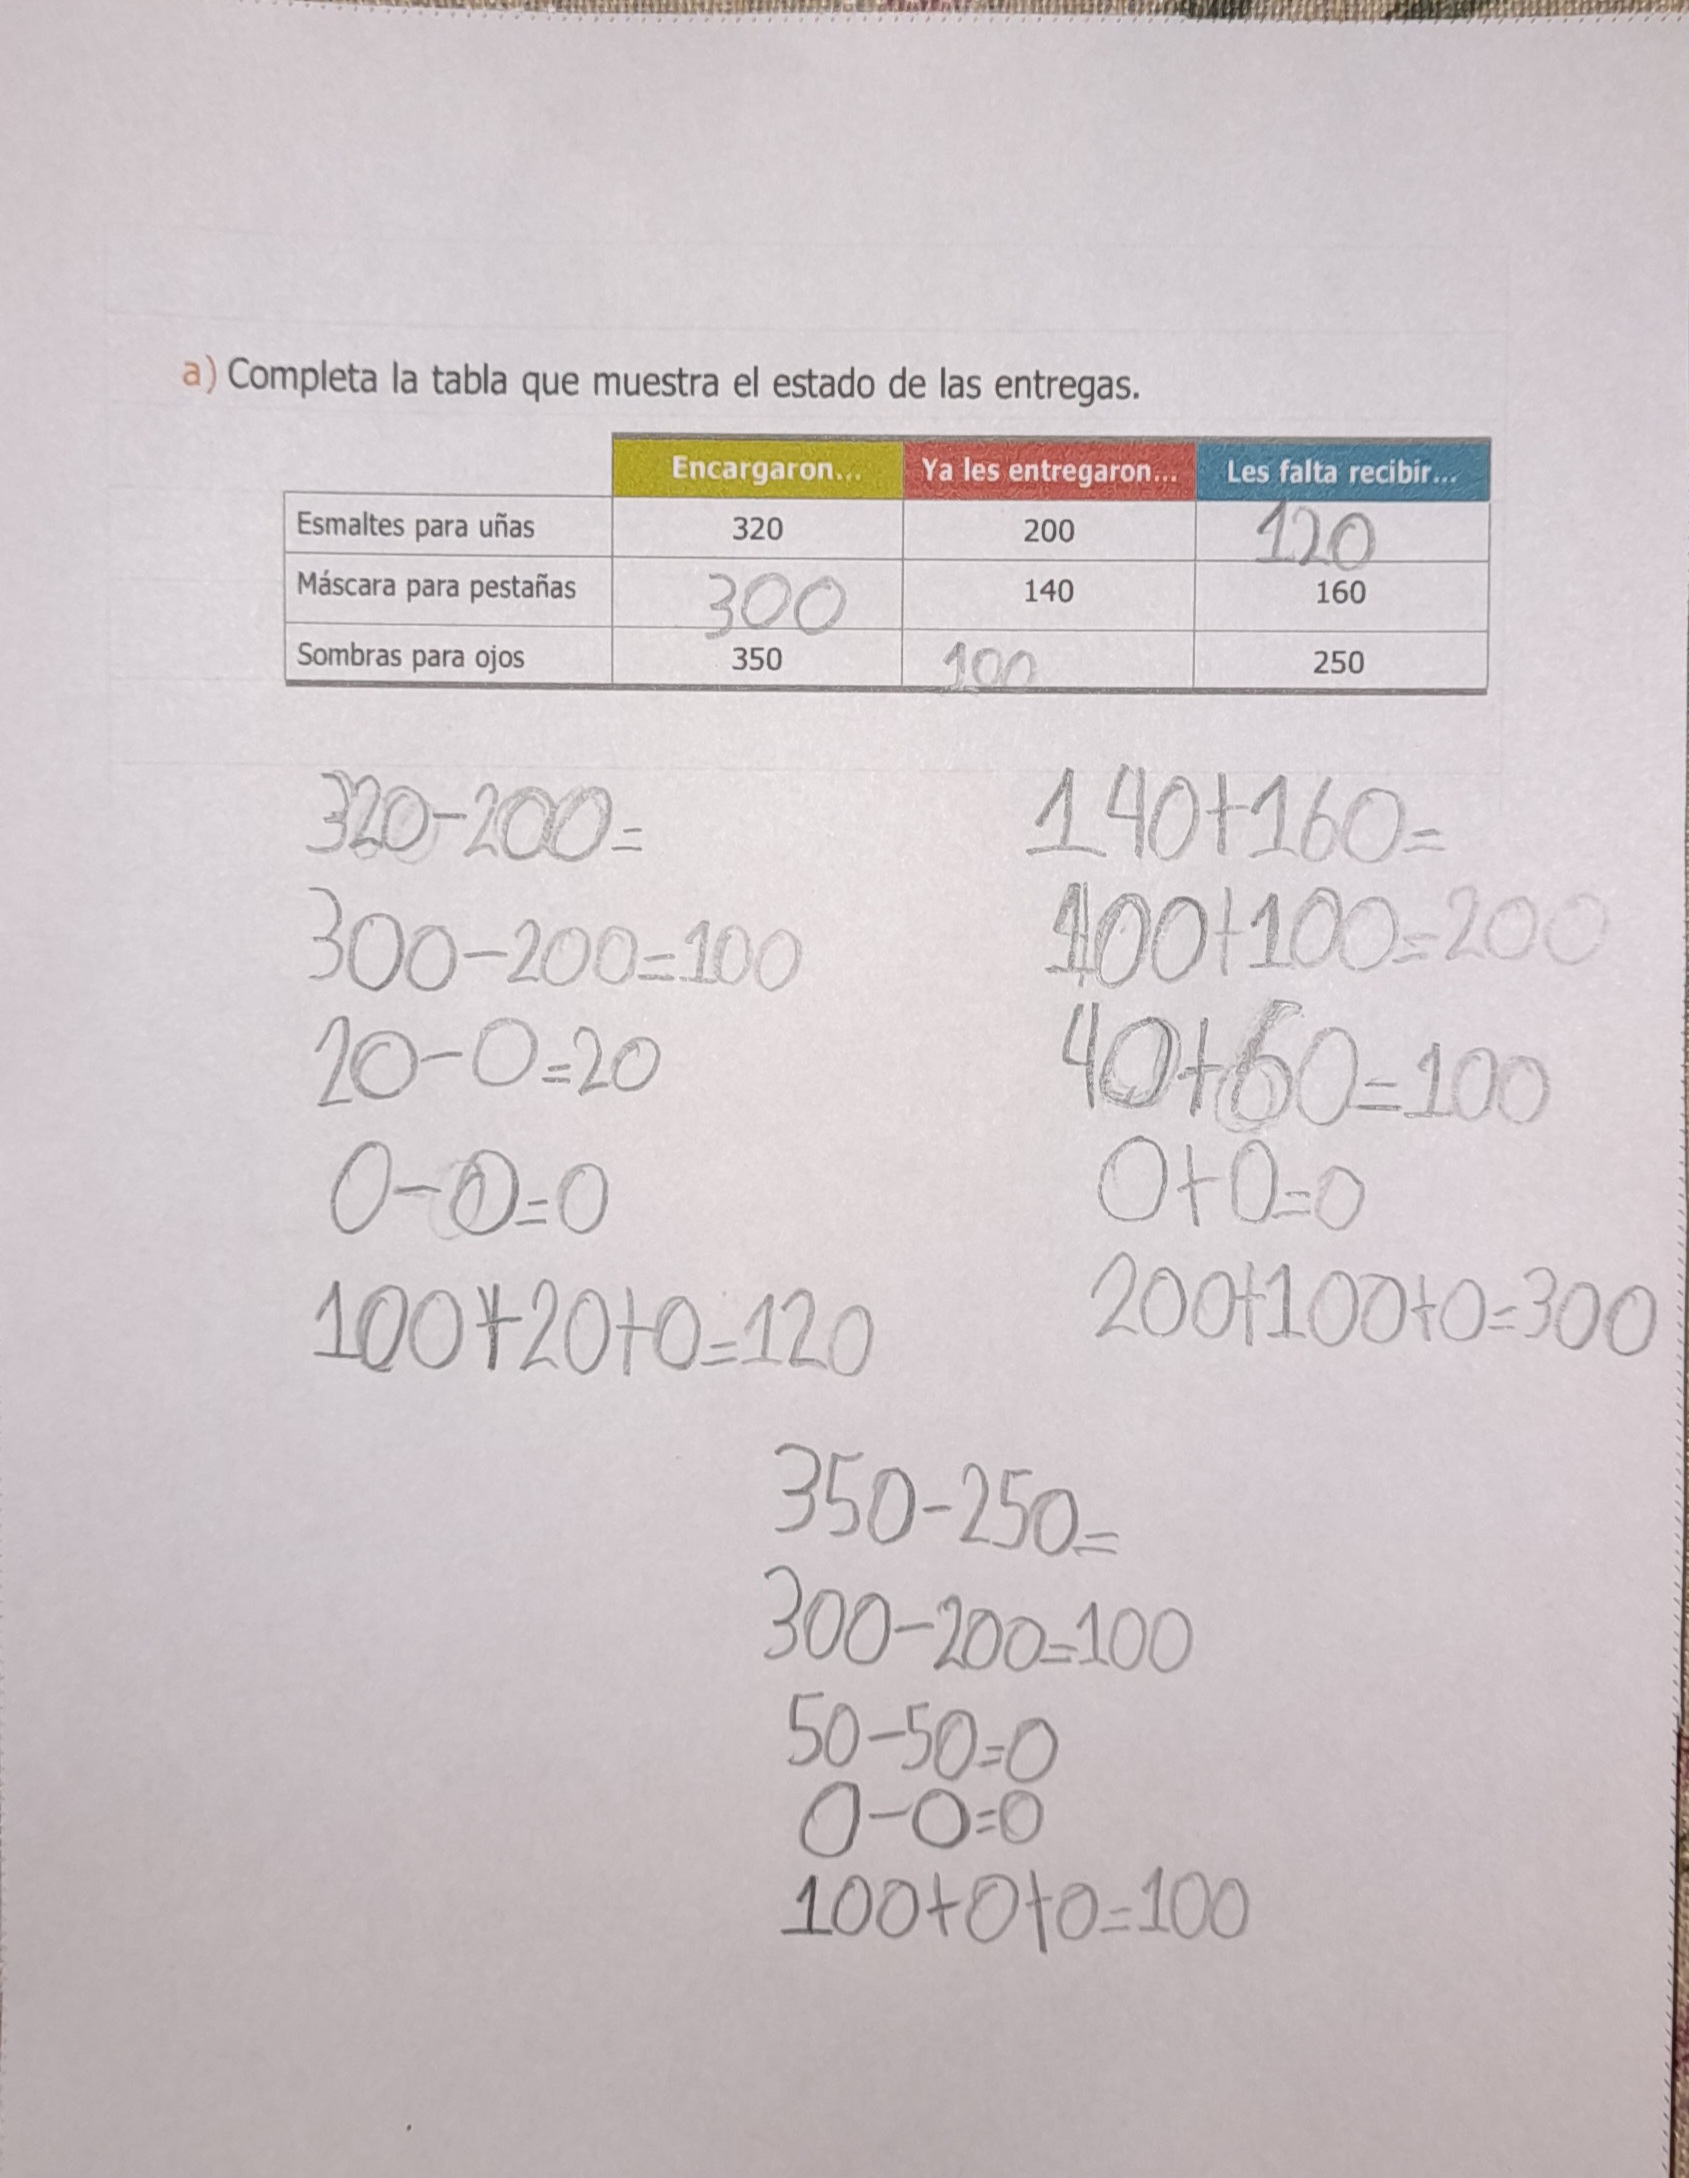 a) Completa la tabla que muestra el estado de las entregas.
Encargaron... Ya les entregaron... Les falta recibir...
Esmaltes para uñas 320 200 120
Máscara para pestañas 300 140 160
Sombras para ojos 350 100 250
320-200=
300-200=100
20-0=20
0-0=0
100+20+0=120
140+160=
100+100=200
40+60=100
0+0=0
200+100+0=300
350-250=
300-200=100
50-50=0
0-0=0
100+0+0=100